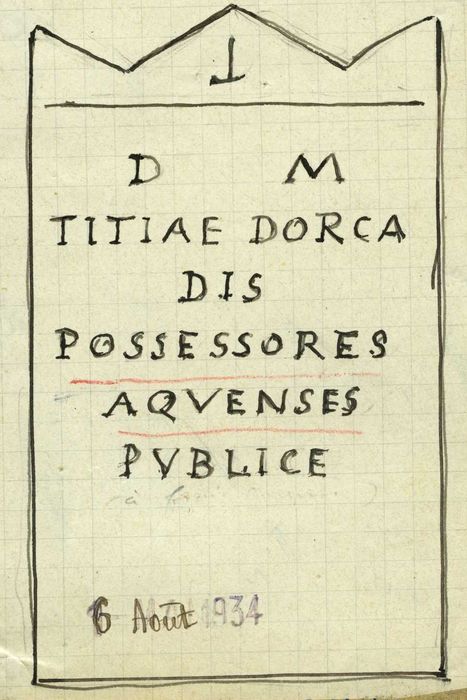 D M
TITIAE DORCA
DIS
POSSESSORES
AQVENSES
PVBLICE
6 Août 1934